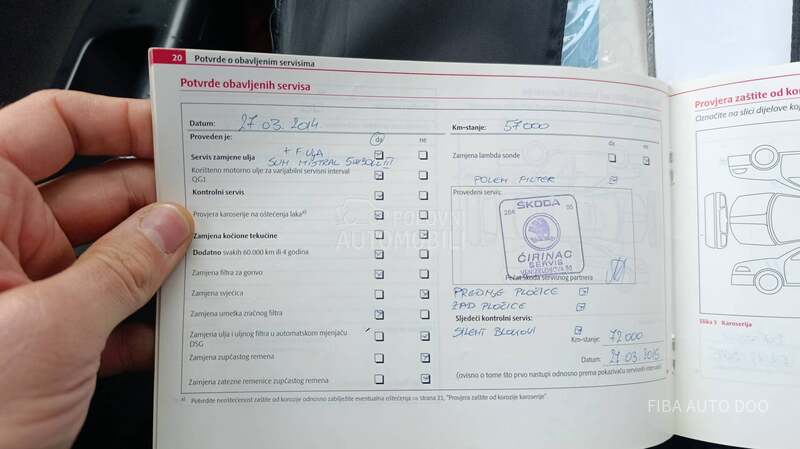 20 Potvrde o obavljenim servisima
Potvrde obavljenih servisa
Provjera zaštite od koro
Označite na slici dijelove koj
Datum: 27.03.2014
Km-stanje: 57000
Proveden je: da ne
da ne
Servis zamjene ulja + F. ULJA
SUH. MISTRAL 5W30
Zamjena lambda sonde
Korišteno motorno ulje za varijabilni servisni interval
QG1
POLEN FILTER
Kontrolni servis
Provedeni servis:
Provjera karoserije na oštećenja laka a)
ŠKODA
ĆIRINAC
SERVIS
Pečat Škoda servisnog partnera
Zamjena kočione tekućine
Dodatno svakih 60.000 km ili 4 godine
Zamjena filtra za gorivo
Zamjena svjećica
PREDNJE PLOČICE
ZAD PLOČICE
Zamjena umetka zračnog filtra
Sljedeći kontrolni servis:
Zamjena ulja i uljnog filtra u automatskom mjenjaču
DSG
SILENT BLOKOVI
Km-stanje: 72000
Zamjena zupčastog remena
Datum: 27.03.2015
Zamjena zatezne remenice zupčastog remena
(ovisno o tome što prvo nastupi odnosno prema pokazivaču servisnih intervala)
a) Potvrdite neoštećenost zaštite od korozije odnosno zabilježite eventualna oštećenja na strana 21, "Provjera zaštite od korozije karoserije".
Slika 5 Karoserija
POLOVNI
AUTOMOBILI
FIBA AUTO DOO